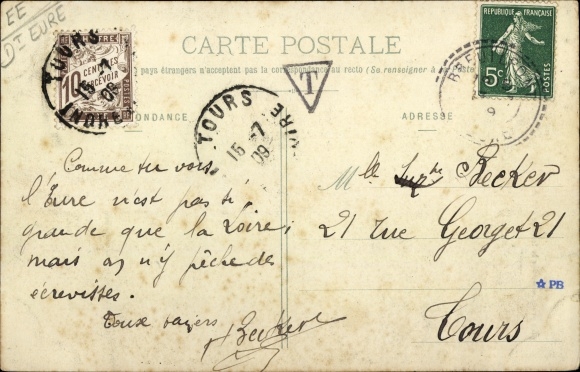 EE
DI EURE
CENTIMES
10
À PERCEVOIR
TOURS
15 -7
09
INDRE
CARTE POSTALE
pays étrangers n'acceptent pas la correspondance au recto (Se renseigner à
RÉPUBLIQUE FRANÇAISE
5c
POSTES
T
TOURS
15 -7
09
CORRESPONDANCE
ADRESSE
9
Comme tu vois
l'Eure n'est pas si
grande que la Loire;
mais on n'y pêche des
écrevisses.
Doux baisers
Becker
Mlle Becker
21 rue Georget 21
Tours
PB